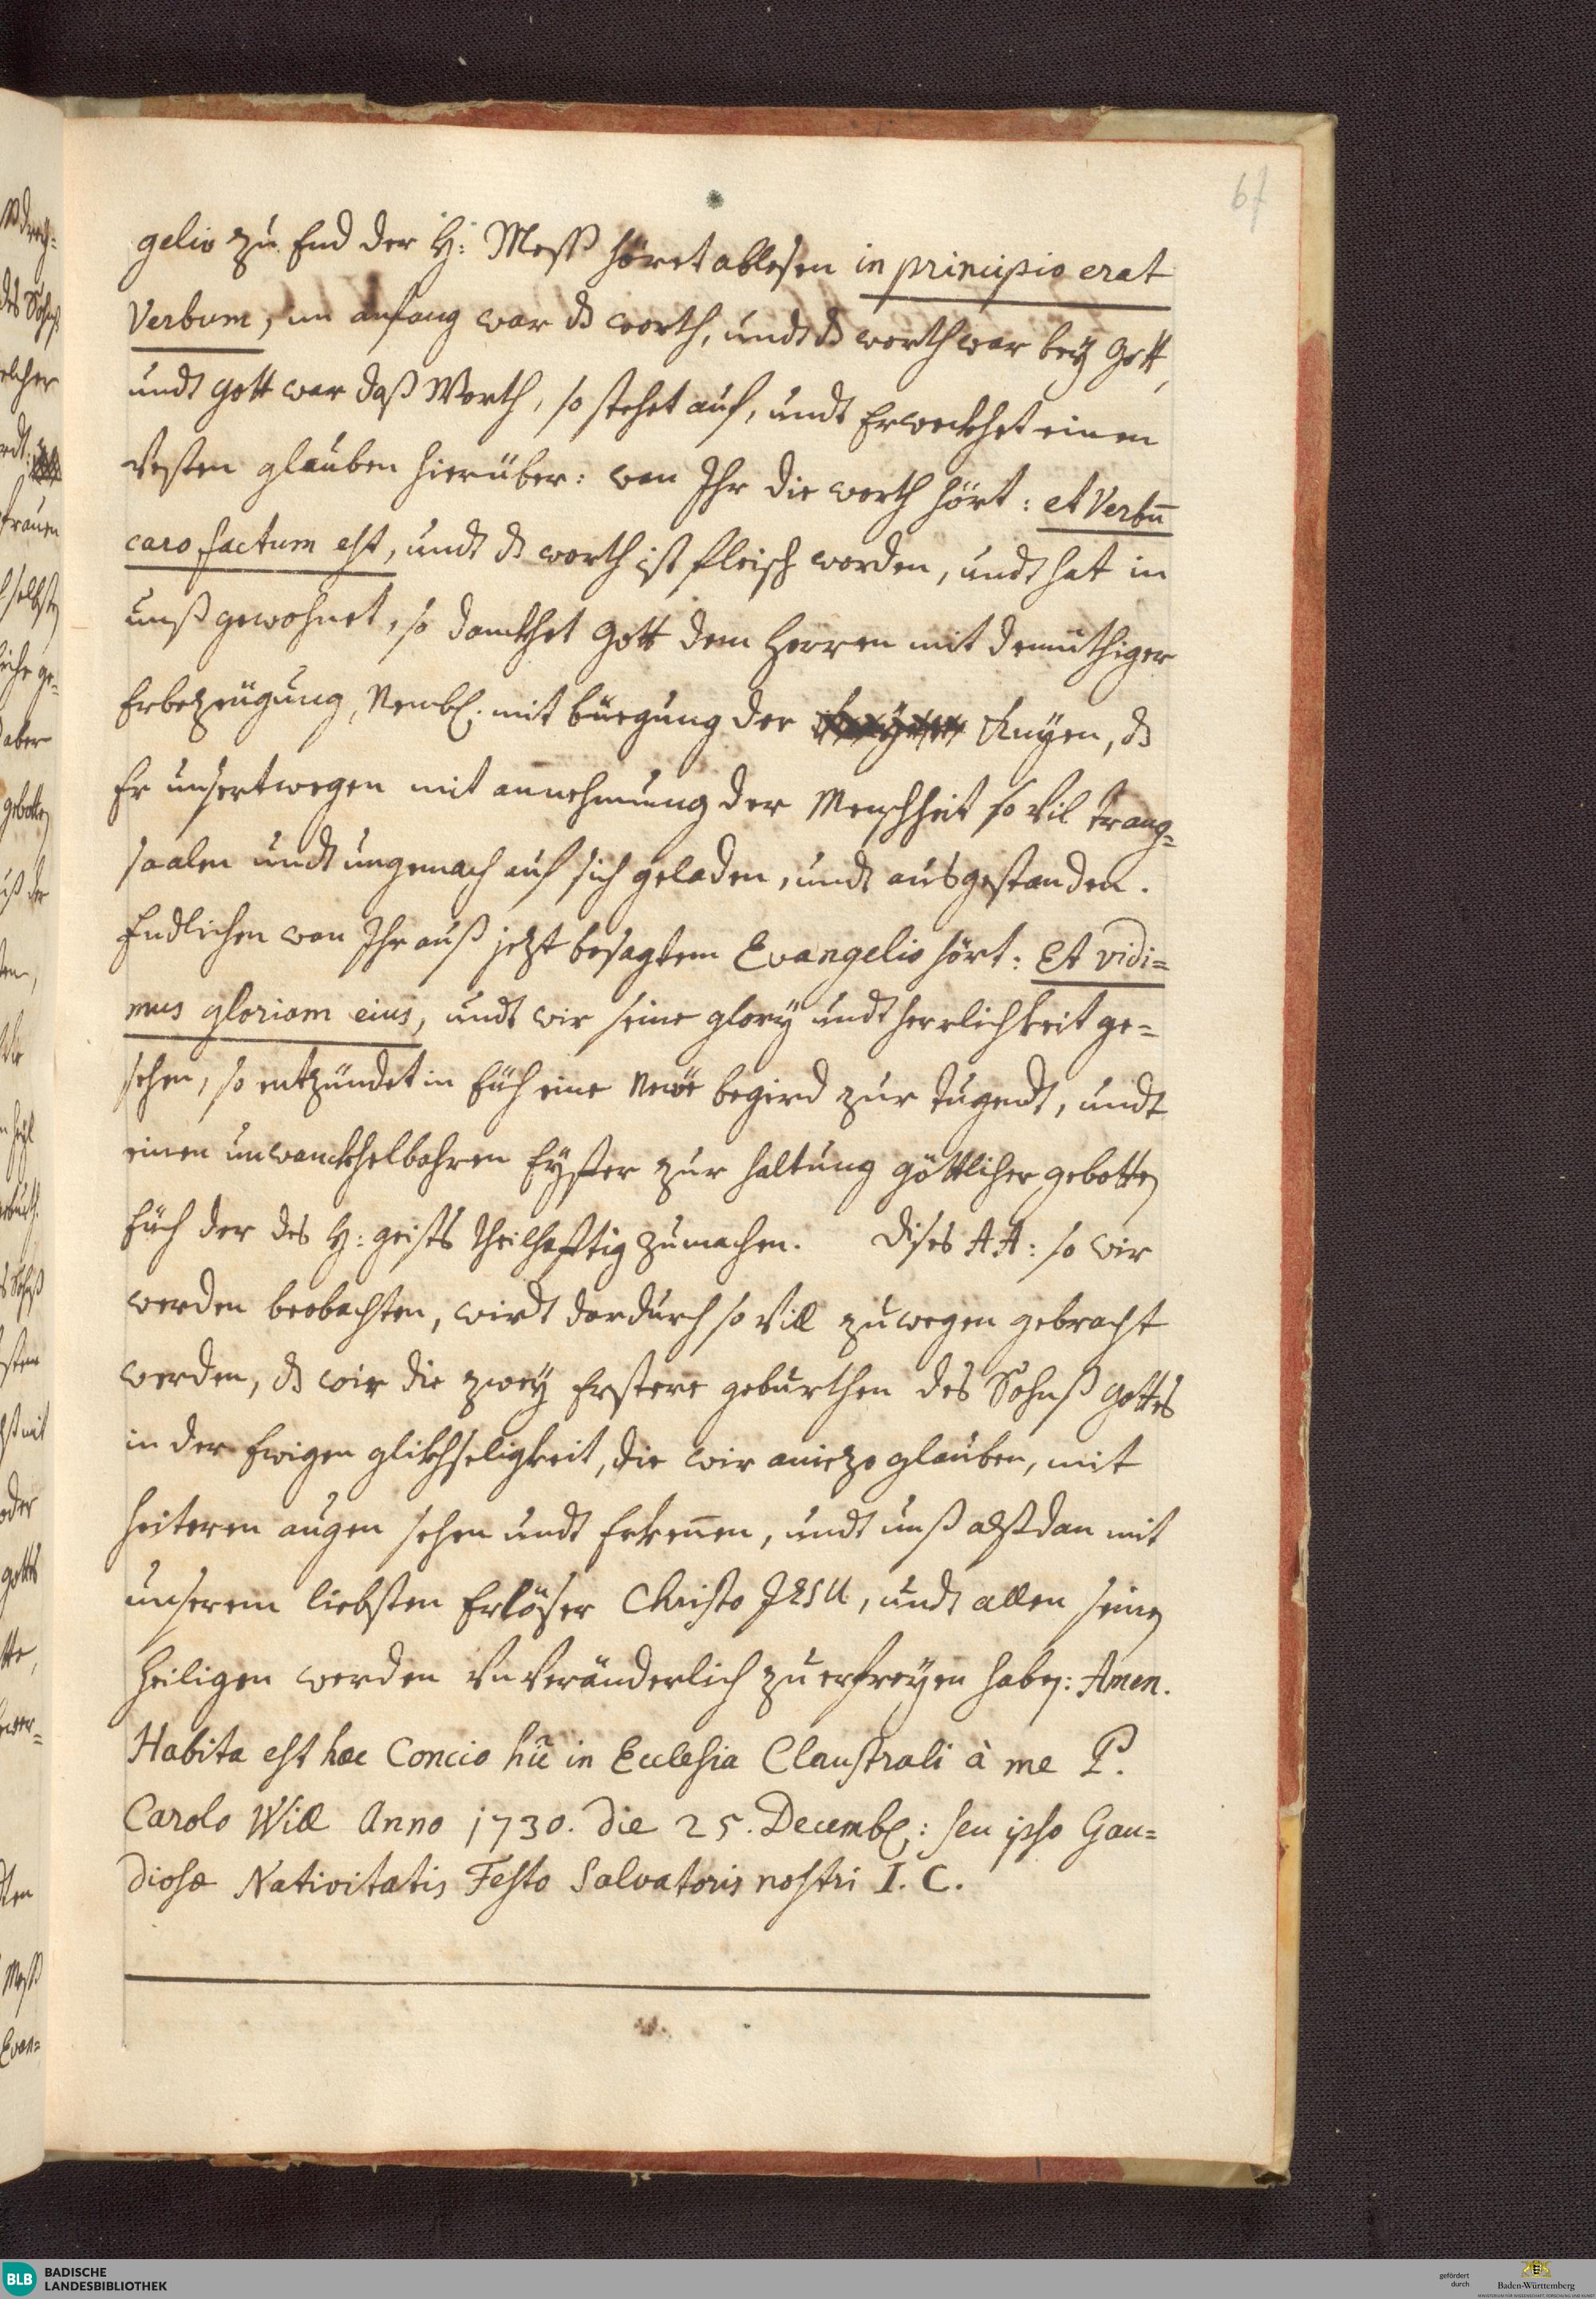 67
gelio zu End der H: Mess höret ablesen in principio erat
Verbum, im anfang war ds worth, undt ds worth war bey Gott,
undt Gott war daß Worth, so stehet auf, undt Erweckhet einen
Vesten glauben hierüber: wan Ihr die worth hört: et Verbū
caro factum est, undt ds worth ist fleisch worden, undt hat in
unß gewohnet, so danckhet Gott dem Herren mit demüthiger
Erbezeugung, Nembl. mit biegung der Knÿen, ds
Er unsertwegen mit annehmung der Menschheit so vil trang-
saalen undt ungemach auf sich geladen, undt ausgestanden.
Endlichen wan Ihr auß jetzt besagtem Evangelio hört: Et vidi=
mus gloriam eius, undt wir seine glory undt herrlichkeit ge=
sehen, so entzündet in Euch eine Newe begird zur tugendt, undt
einen unwanckhelbahren Eyffer zur haltung göttlicher gebotten
Euch der des H: geists theilhafftig zu machen. Dises AA: so wir
werden beobachten, wirdt dardurch so Vill zuwegen gebracht
werden, ds wir die zwey Erstere geburthen des Sohnß Gottes
in der Ewigen glickhseligkeit, die wir aniezo glauben, mit
heiteren augen sehen undt Erkennen, undt unß alßdan mit
unserem liebsten Erlöser Christo JESU, undt allen seinen
Heiligen werden Vnveränderlich zu erfreyen haben: Amen.
Habita est hæc Concio hic in Ecclesia Claustrali à me P.
Carolo Will Anno 1730. die 25. Decemb: seu ipso Gau=
diosæ Nativitatis Festo Salvatoris nostri I. C.
BLB BADISCHE
LANDESBIBLIOTHEK
gefördert
durch
Baden-Württemberg